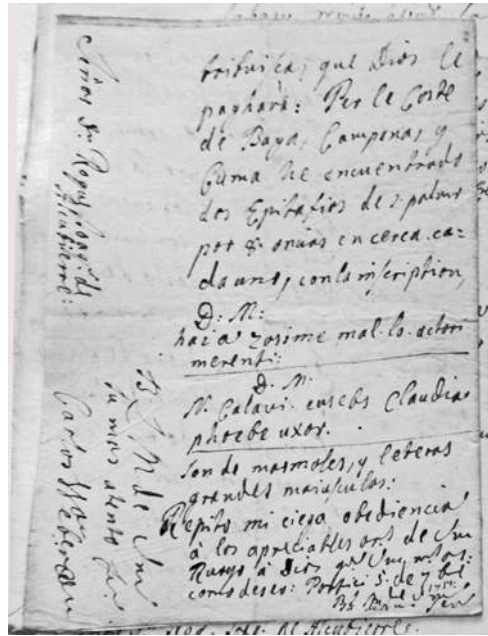 tribuirla, que Dios le
paghará: Per le Coste
de Baya, Campena, y
Cuma he encuentrado
dos Epitafios de 2. palmos
por 8. onzas en cerca ca-
da uno, con la inscription,
D: M:
haia zosime mal. lo. actori
merenti:
D. M.
M. Calavi. eusebs Claudia
phoebe uxor.
son de marmoles, y leteras
grandes maiusculas:
Repito mi ciega obediencia
à los apreciables ors de Sm
Ruego à Dios
como deseo: Portici 5: de 7bre
Señor Dn. Roque Joaqn. de
Alcubierre:
B. L. M de Sm
su mas atento
Carlos Weber